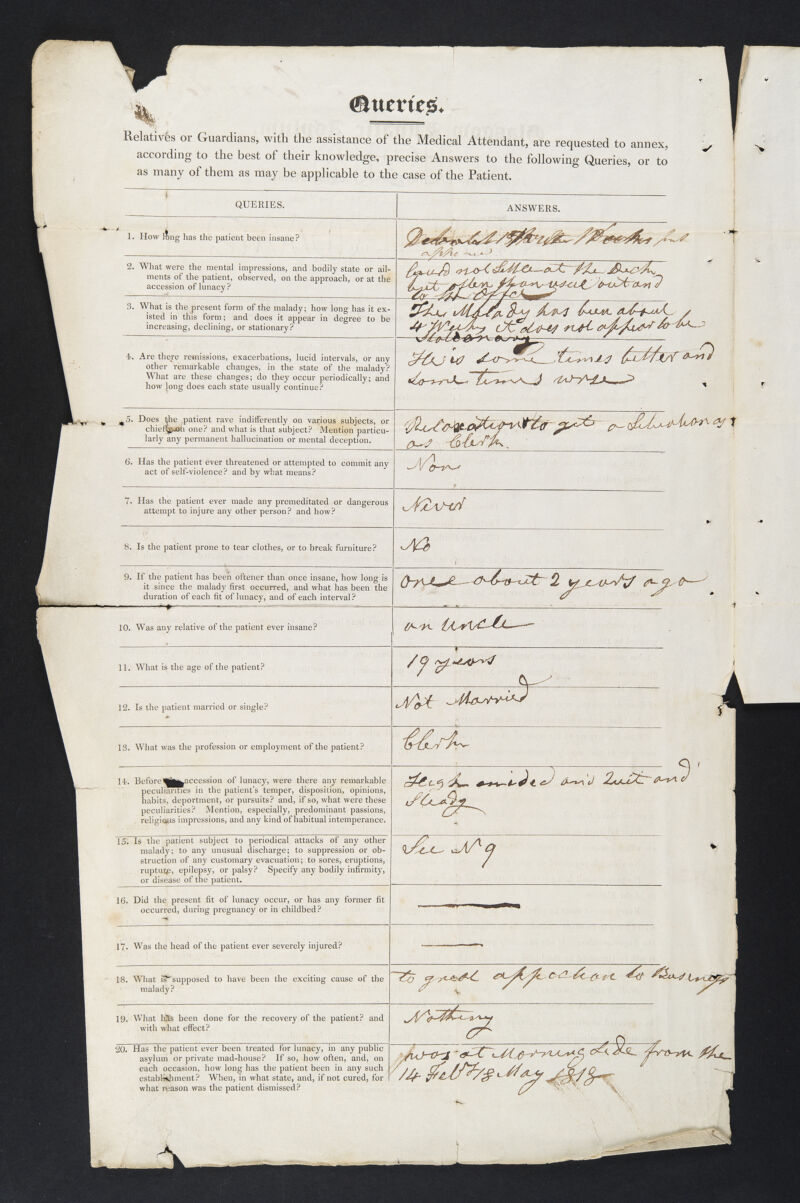 Queries.
Relatives or Guardians, with the assistance of the Medical Attendant, are requested to annex,
according to the best of their knowledge, precise Answers to the following Queries, or to
as many of them as may be applicable to the case of the Patient.
QUERIES.
ANSWERS.
1. How long has the patient been insane?
2. What were the mental impressions, and bodily state or ail-
ments of the patient, observed, on the approach, or at the
accession of lunacy?
not Settle at the Desk
but often than usual out and
to the Office
3. What is the present form of the malady; how long has it ex-
isted in this form; and does it appear in degree to be
increasing, declining, or stationary?
The Malady has been about
4 Weeks it does not appear to be
4. Are there remissions, exacerbations, lucid intervals, or any
other remarkable changes, in the state of the malady?
What are these changes; do they occur periodically; and
how long does each state usually continue?
He is some times better and
some times worse
5. Does the patient rave indifferently on various subjects, or
chiefly on one? and what is that subject? Mention particu-
larly any permanent hallucination or mental deception.
to get a
as Clerk.
6. Has the patient ever threatened or attempted to commit any
act of self-violence? and by what means?
Non
7. Has the patient ever made any premeditated or dangerous
attempt to injure any other person? and how?
Never
8. Is the patient prone to tear clothes, or to break furniture?
No
9. If the patient has been oftener than once insane, how long is
it since the malady first occurred, and what has been the
duration of each fit of lunacy, and of each interval?
once about 2 years ago
10. Was any relative of the patient ever insane?
an Uncle
11. What is the age of the patient?
19 years
12. Is the patient married or single?
Not Married
13. What was the profession or employment of the patient?
Clerk
14. Before the accession of lunacy, were there any remarkable
peculiarities in the patient's temper, disposition, opinions,
habits, deportment, or pursuits? and, if so, what were these
peculiarities? Mention, especially, predominant passions,
religious impressions, and any kind of habitual intemperance.
High minded and Quit and
Steady
15. Is the patient subject to periodical attacks of any other
malady; to any unusual discharge; to suppression or ob-
struction of any customary evacuation; to sores, eruptions,
rupture, epilepsy, or palsy? Specify any bodily infirmity,
or disease of the patient.
See No 9
16. Did the present fit of lunacy occur, or has any former fit
occurred, during pregnancy or in childbed?
17. Was the head of the patient ever severely injured?
18. What is supposed to have been the exciting cause of the
malady?
to great to Business
19. What has been done for the recovery of the patient? and
with what effect?
Nothing
20. Has the patient ever been treated for lunacy, in any public
asylum or private mad-house? If so, how often, and, on
each occasion, how long has the patient been in any such
establishment? When, in what state, and, if not cured, for
what reason was the patient dismissed?
was at Morning Side from the
14 Feb